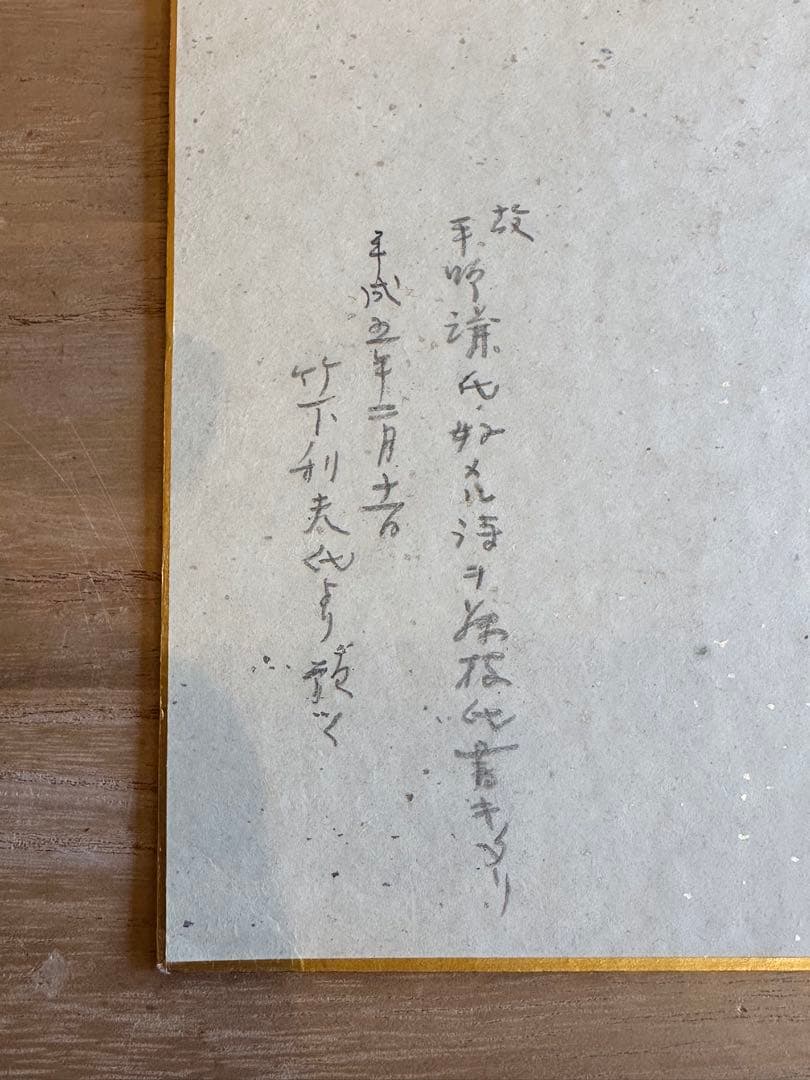 故
平野謙氏好メル詩ヲ兼枝氏書キタリ
平成五年二月十一日
竹下利夫氏より預く